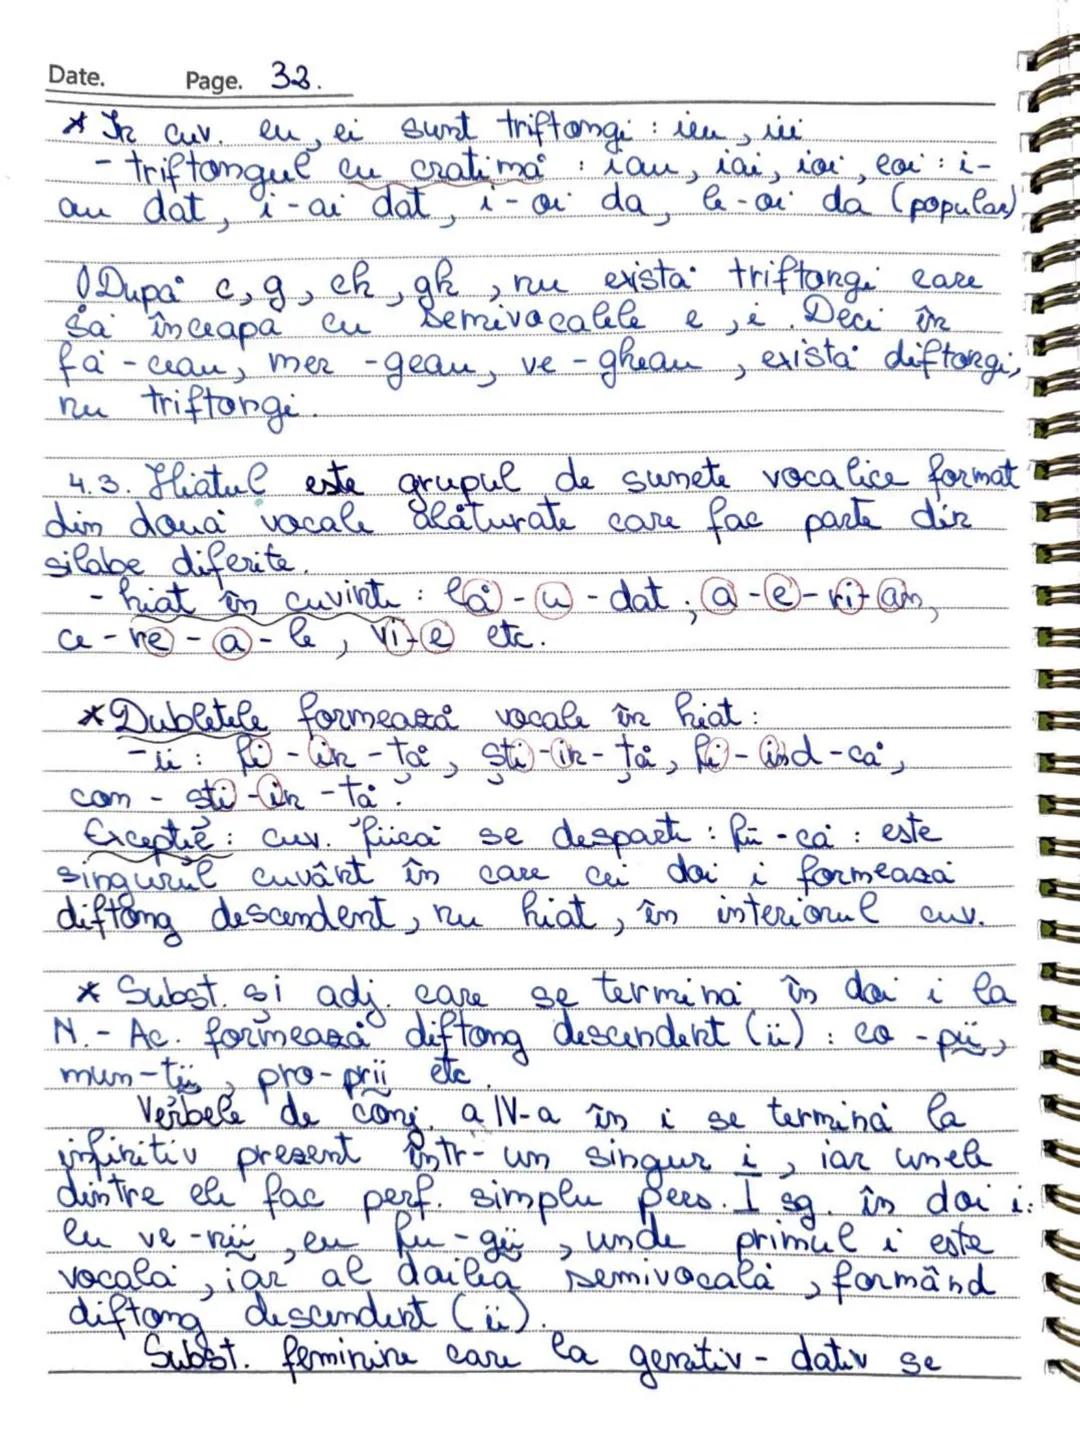 Date. Page. 33.
* În cuv. eu, ei sunt triftongi: ieu, iei
- triftongul cu cratimă: iau, iai, ioi, eoi: i-
au dat, i-ai dat, i-oi da, le-oi da (popular)
! După c, g, ch, gh, nu există triftongi care
să înceapă cu semivocalele e, i. Deci în
fă-ceau, mer-geau, ve-gheau, există diftongi,
nu triftongi.
4.3. Hiatul este grupul de sunete vocalice format
din două vocale alăturate care fac parte din
silabe diferite.
- hiat în cuvinte: lă-u-dat; a-e-ri-an,
ce-re-a-le, vi-e etc.
* Dubletele formează vocale în hiat:
- ii: fi-in-ță, ști-in-ță, fi-ind-că,
con-ști-in-ță.
Excepție: cuv. fiică se desparte: fii-că: este
singurul cuvânt în care cei doi i formează
diftong descendent, nu hiat, în interiorul cuv.
* Subst. și adj. care se termină în doi i la
N.-Ac. formează diftong descendent (ii): co-pii,
mun-ții, pro-prii etc.
Verbele de conj. a IV-a în i se termină la
infinitiv prezent într-un singur i, iar unele
dintre ele fac perf. simplu pers. I sg. în doi i:
eu ve-nii, eu fu-gii, unde primul i este
vocală, iar al doilea semivocală, formând
diftong descendent (ii).
Subst. feminine care la genitiv-dativ se